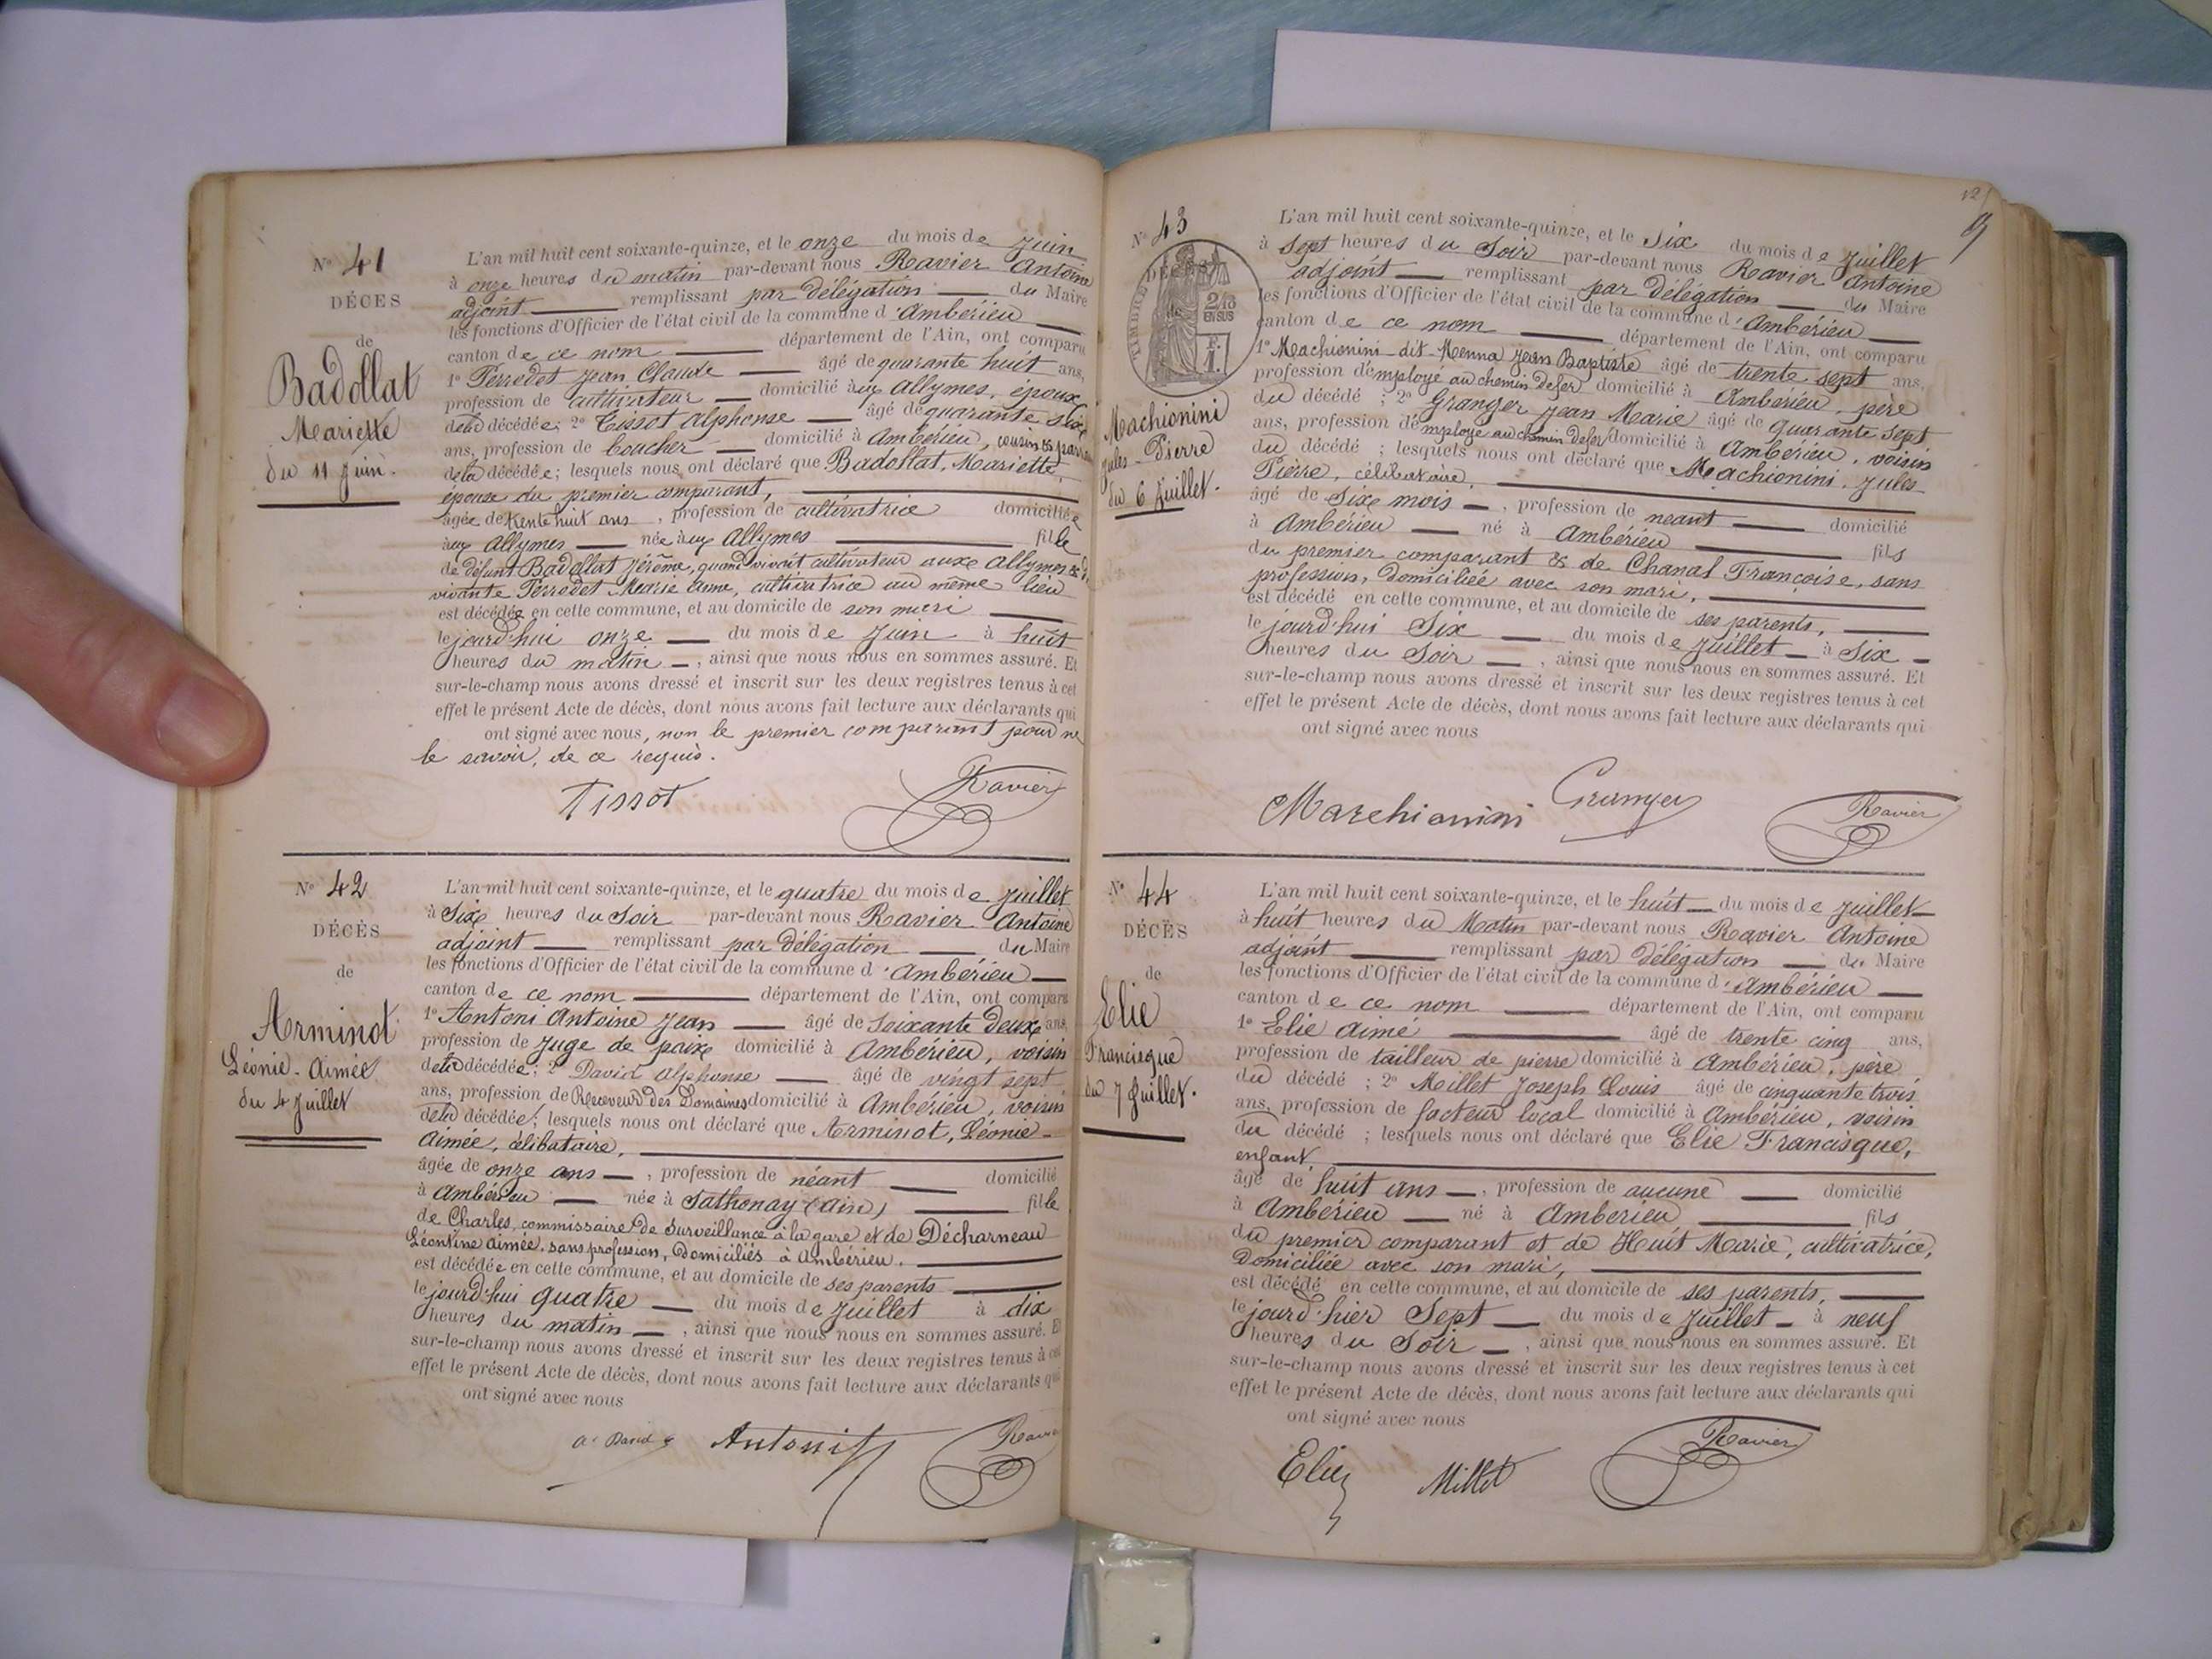 N° 41
DÉCES
de
Badollat
Mariette
du 11 Juin.
L'an mil huit cent soixante-quinze, et le onze du mois de Juin
à onze heures du matin par-devant nous Ravier Antoine
adjoint remplissant par délégation du Maire
les fonctions d'Officier de l'état civil de la commune d'Ambérieu
canton de ce nom département de l'Ain, ont comparu
1° Perredet Jean Claude âgé de quarante huit ans,
profession de cultivateur domicilié aux Allymes, époux
de la décédée; 2° Tissot Alphonse âgé de quarante six
ans, profession de boucher domicilié à Ambérieu, cousin
de la décédée; lesquels nous ont déclaré que Badollat, Mariette,
épouse du premier comparant,
âgée de trente huit ans, profession de cultivatrice domiciliée
aux Allymes née aux Allymes fille
de défunt Badollat Jérôme, quand vivait cultivateur aux Allymes & d
vivante Perredet Marie Anne, cultivatrice au même lieu
est décédée en cette commune, et au domicile de son mari
le jourd'hui onze du mois de Juin à huit
heures du matin, ainsi que nous nous en sommes assuré. Et
sur-le-champ nous avons dressé et inscrit sur les deux registres tenus à cet
effet le présent Acte de décès, dont nous avons fait lecture aux déclarants qui
ont signé avec nous, non le premier comparant pour ne
le savoir, de ce requis.
Tissot Ravier
N° 42
DÉCÈS
de
Arminot
Léonie-Aimée
du 4 Juillet
L'an mil huit cent soixante-quinze, et le quatre du mois de Juillet
à Six heures du Soir par-devant nous Ravier Antoine
adjoint remplissant par délégation du Maire
les fonctions d'Officier de l'état civil de la commune d'Ambérieu
canton de ce nom département de l'Ain, ont comparu
1° Antoni Antoine Jean âgé de soixante deux ans,
profession de Juge de paix domicilié à Ambérieu, voisin
de la décédée; 2° David Alphonse âgé de vingt sept
ans, profession de Receveur des Domaines domicilié à Ambérieu, voisin
de la décédée; lesquels nous ont déclaré que Arminot, Léonie-
Aimée, célibataire,
âgée de onze ans, profession de néant domicilié
à Ambérieu née à Sathonay (Ain) fille
de Charles, commissaire de Surveillance à la gare et de Décharneau
Léontine Aimée, sans profession, domiciliés à Ambérieu.
est décédée en cette commune, et au domicile de ses parents
le jourd'hui quatre du mois de Juillet à dix
heures du matin, ainsi que nous nous en sommes assuré. Et
sur-le-champ nous avons dressé et inscrit sur les deux registres tenus à cet
effet le présent Acte de décès, dont nous avons fait lecture aux déclarants qui
ont signé avec nous
A. David Antoni Ravier
N° 43
TIMBRE DE
2/10
EN SUS
F.
1.
Machionini
Jules-Pierre
du 6 Juillet.
L'an mil huit cent soixante-quinze, et le Six du mois de Juillet
à Sept heures du Soir par-devant nous Ravier Antoine
adjoint remplissant par délégation du Maire
les fonctions d'Officier de l'état civil de la commune d'Ambérieu
canton de ce nom département de l'Ain, ont comparu
1° Machionini dit Menna Jean Baptiste âgé de trente sept ans,
profession d'employé au chemin de fer domicilié à Ambérieu, père
du décédé; 2° Granger Jean Marie âgé de quarante sept
ans, profession d'employé au chemin de fer domicilié à Ambérieu, voisin
du décédé; lesquels nous ont déclaré que Machionini, Jules
Pierre, célibataire,
âgé de Six mois, profession de néant domicilié
à Ambérieu né à Ambérieu fils
du premier comparant & de Chanal Françoise, sans
profession, domiciliée avec son mari,
est décédé en cette commune, et au domicile de ses parents,
le jourd'hui Six du mois de Juillet à Six
heures du Soir, ainsi que nous nous en sommes assuré. Et
sur-le-champ nous avons dressé et inscrit sur les deux registres tenus à cet
effet le présent Acte de décès, dont nous avons fait lecture aux déclarants qui
ont signé avec nous
Marchionini Granger Ravier
N° 44
DÉCÈS
de
Elie
Francisque
du 7 Juillet.
L'an mil huit cent soixante-quinze, et le huit du mois de Juillet
à huit heures du Matin par-devant nous Ravier Antoine
adjoint remplissant par délégation du Maire
les fonctions d'Officier de l'état civil de la commune d'Ambérieu
canton de ce nom département de l'Ain, ont comparu
1° Elie Aimé âgé de trente cinq ans,
profession de tailleur de pierre domicilié à Ambérieu, père
du décédé; 2° Millet Joseph Louis âgé de cinquante trois
ans, profession de facteur local domicilié à Ambérieu, voisin
du décédé; lesquels nous ont déclaré que Elie Francisque,
enfant,
âgé de huit ans, profession de aucune domicilié
à Ambérieu né à Ambérieu fils
du premier comparant et de Huit Marie, cultivatrice,
domiciliée avec son mari,
est décédé en cette commune, et au domicile de ses parents,
le jourd'hier Sept du mois de Juillet à neuf
heures du Soir, ainsi que nous nous en sommes assuré. Et
sur-le-champ nous avons dressé et inscrit sur les deux registres tenus à cet
effet le présent Acte de décès, dont nous avons fait lecture aux déclarants qui
ont signé avec nous
Elie Millet Ravier